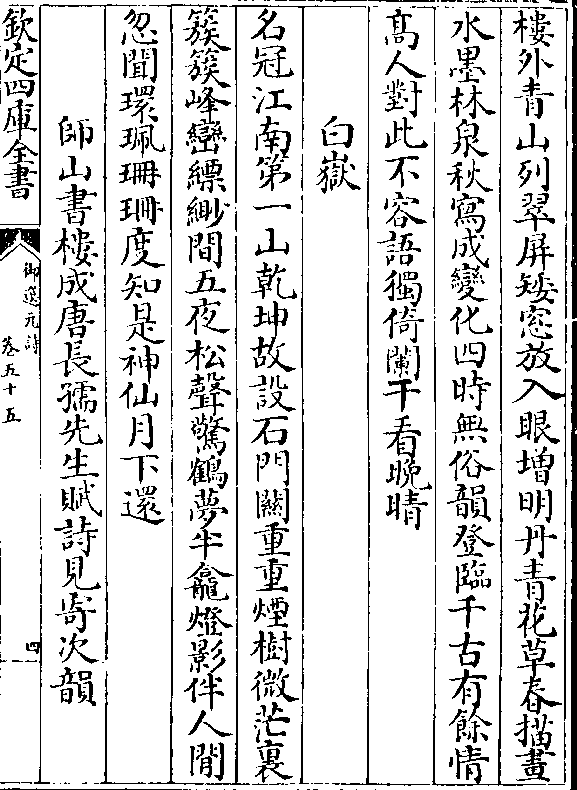 樓外青山列翠屏矮窓放入眼增明丹青花草春描畫
水墨林泉秋寫成變化四時無俗韻登臨千古有餘情
髙人對此不容語獨倚闌干看晚晴
白嶽
名冠江南第一山乾坤故設石門關重重煙樹微茫裏
簇簇峰巒縹緲間五夜松聲驚鶴夢半龕燈影伴人閒
忽聞環珮珊珊度知是神仙月下還
師山書樓成唐長孺先生賦詩見寄次韻
欽定四庫全書
御選元詩
卷五十五
四